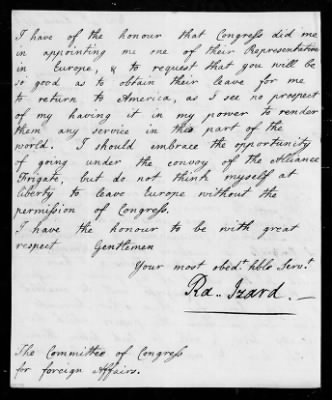 I have of the honour that Congress did me
in appointing me one of their Representatives
in Europe, & to request that you will be
so good as to obtain their leave for me
to return to America, as I see no prospect
of my having it in my power to render
them any service in this part of the
world. I should embrace the opportunity
of going under the convoy of the Alliance
Frigate, but do not think myself at
liberty to leave Europe without the
permission of Congress.
I have the honour to be with great
respect Gentlemen
Your most obedt. hble Servt.
Ra.. Izard.
The Committee of Congress
for foreign Affairs.